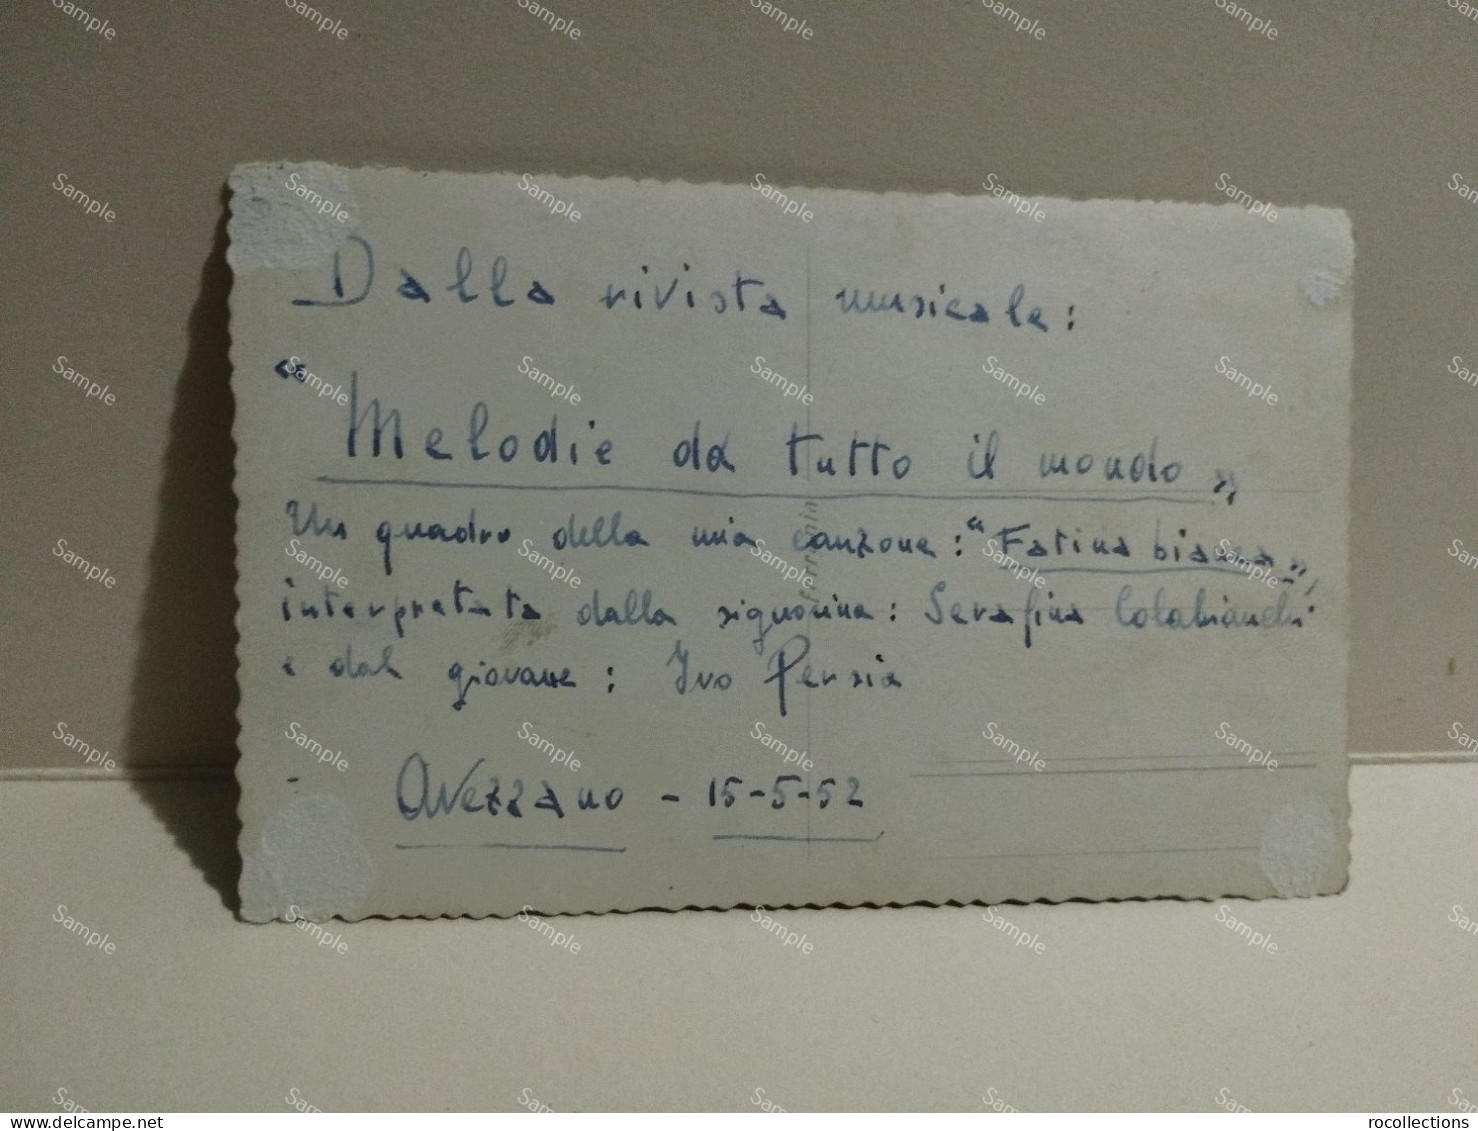 Dalla rivista musicale:
“Melodie da tutto il mondo„
Un quadro della mia canzone: “Fatina bianca„,
interpretata dalla signorina: Serafina Colabianchi
e dal giovane: Ivo Persia
Avezzano - 15-5-52
ferrania
delcampe.net
rocollections
Sample